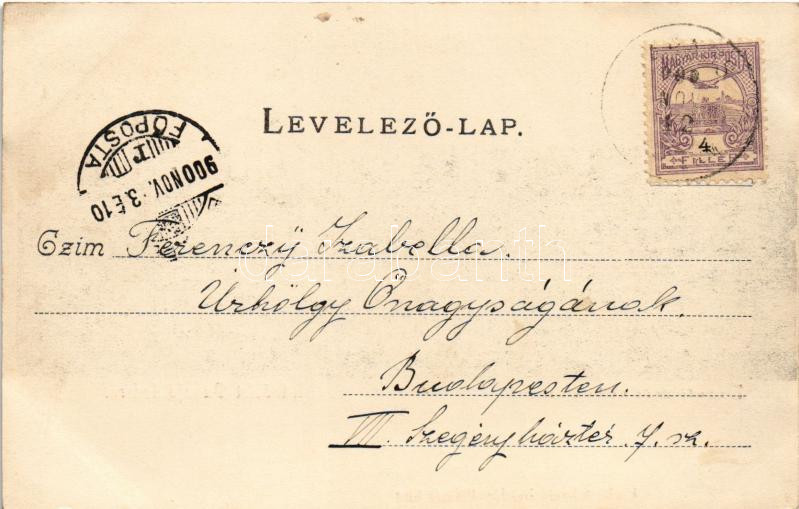 LEVELEZŐ-LAP.
MAGYAR KIR. POSTA
4
FILLÉR
FŐPOSTA
900 NOV. 3. É 10
Czim Ferenczy Izabella.
Úrhölgy Őnagyságának.
Budapesten.
VII. Szegényháztér 7. sz.
darabanth